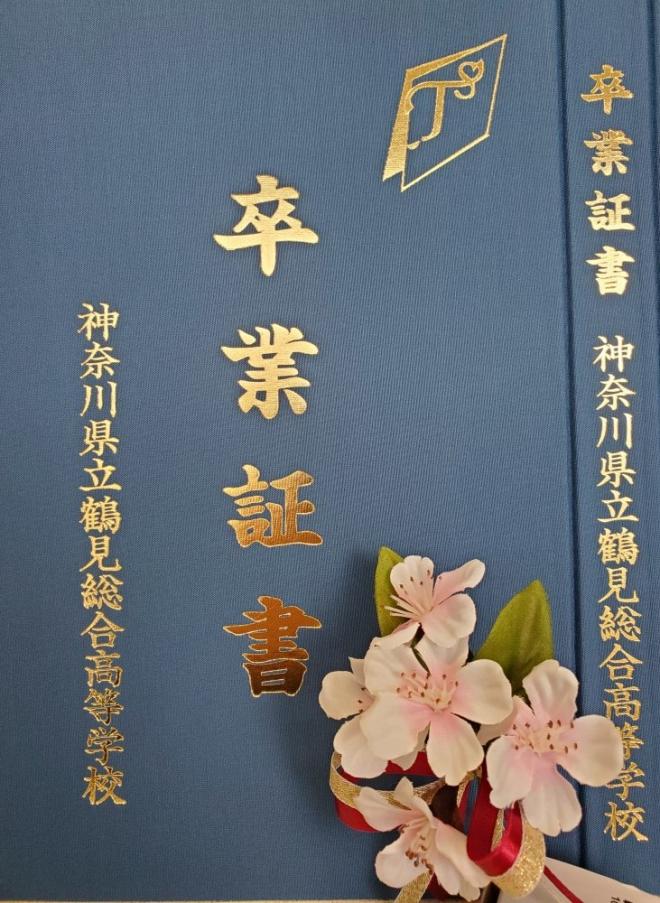 卒業証書
神奈川県立鶴見総合高等学校
TS
卒業証書 神奈川県立鶴見総合高等学校